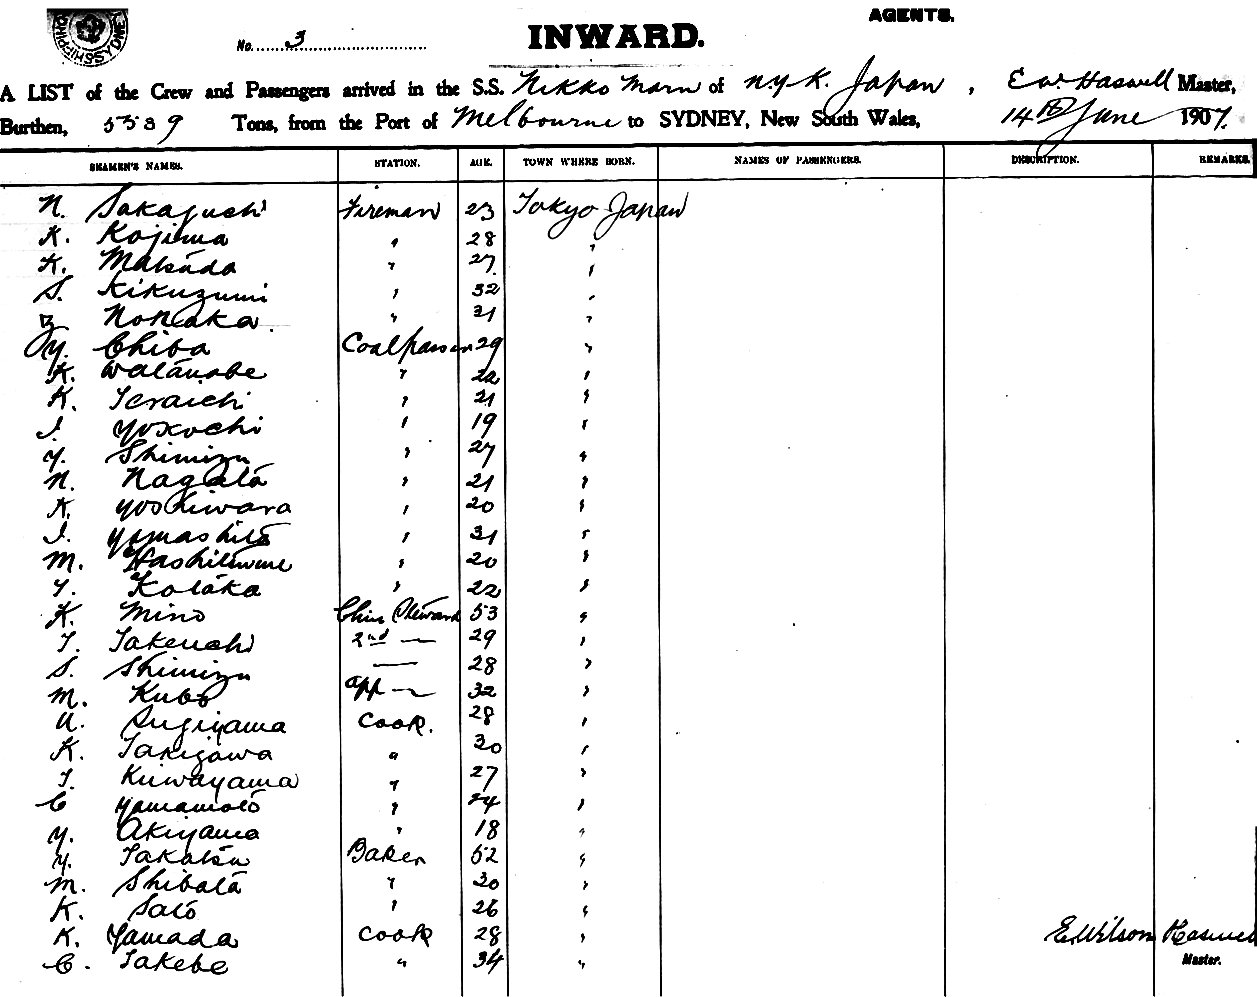 AGENTS.
No. 3
INWARD.
A LIST of the Crew and Passengers arrived in the S.S. Nikko Maru of N.Y.K. Japan, E W Haswell Master,
Burthen, 5539 Tons, from the Port of Melbourne to SYDNEY, New South Wales, 14th June 1907.
SEAMEN'S NAMES. STATION. AGE. TOWN WHERE BORN. NAMES OF PASSENGERS. DESCRIPTION. REMARKS.
N. Sakaguchi Fireman 23 Tokyo Japan
K. Kojima " 28 "
K. Matsuda " 27 "
S. Kikuzumi " 32 "
Z. Nonaka " 31 "
Y. Chiba Coalpasser 29 "
K. Watanabe " 22 "
K. Teraichi " 21 "
I. Yokochi " 19 "
Y. Shimizu " 27 "
N. Nagata " 21 "
K. Yoshiwara " 20 "
I. Yamashita " 31 "
M. Hashitsume " 20 "
Y. Kotaka " 22 "
K. Mino Chief Steward 53 "
T. Takeuchi 2nd — 29 "
S. Shimizu — 28 "
M. Kubo App — 32 "
U. Sugiyama Cook. 28 "
K. Takigawa " 30 "
T. Kuwayama " 27 "
C Yamamoto " 24 "
Y. Akiyama " 18 "
Y. Takatsu Baker 52 "
M. Shibata " 30 "
K. Sato " 26 "
K. Yamada Cook 28 " E. Wilson Haswell
C. Takebe " 34 " Master.